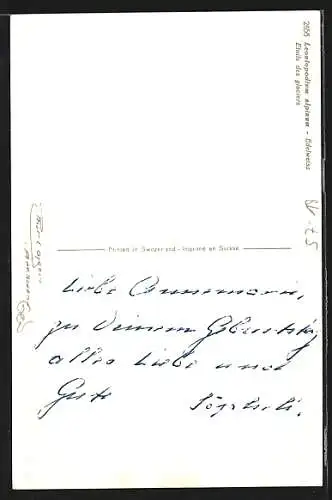 2655 Leontopodium alpinum - Edelweiss
Etoile des glaciers
Printed in Switzerland - Imprimé en Suisse
Liebe Annemarie,
zu Deinem Geburtstag
alles Liebe und
Gute